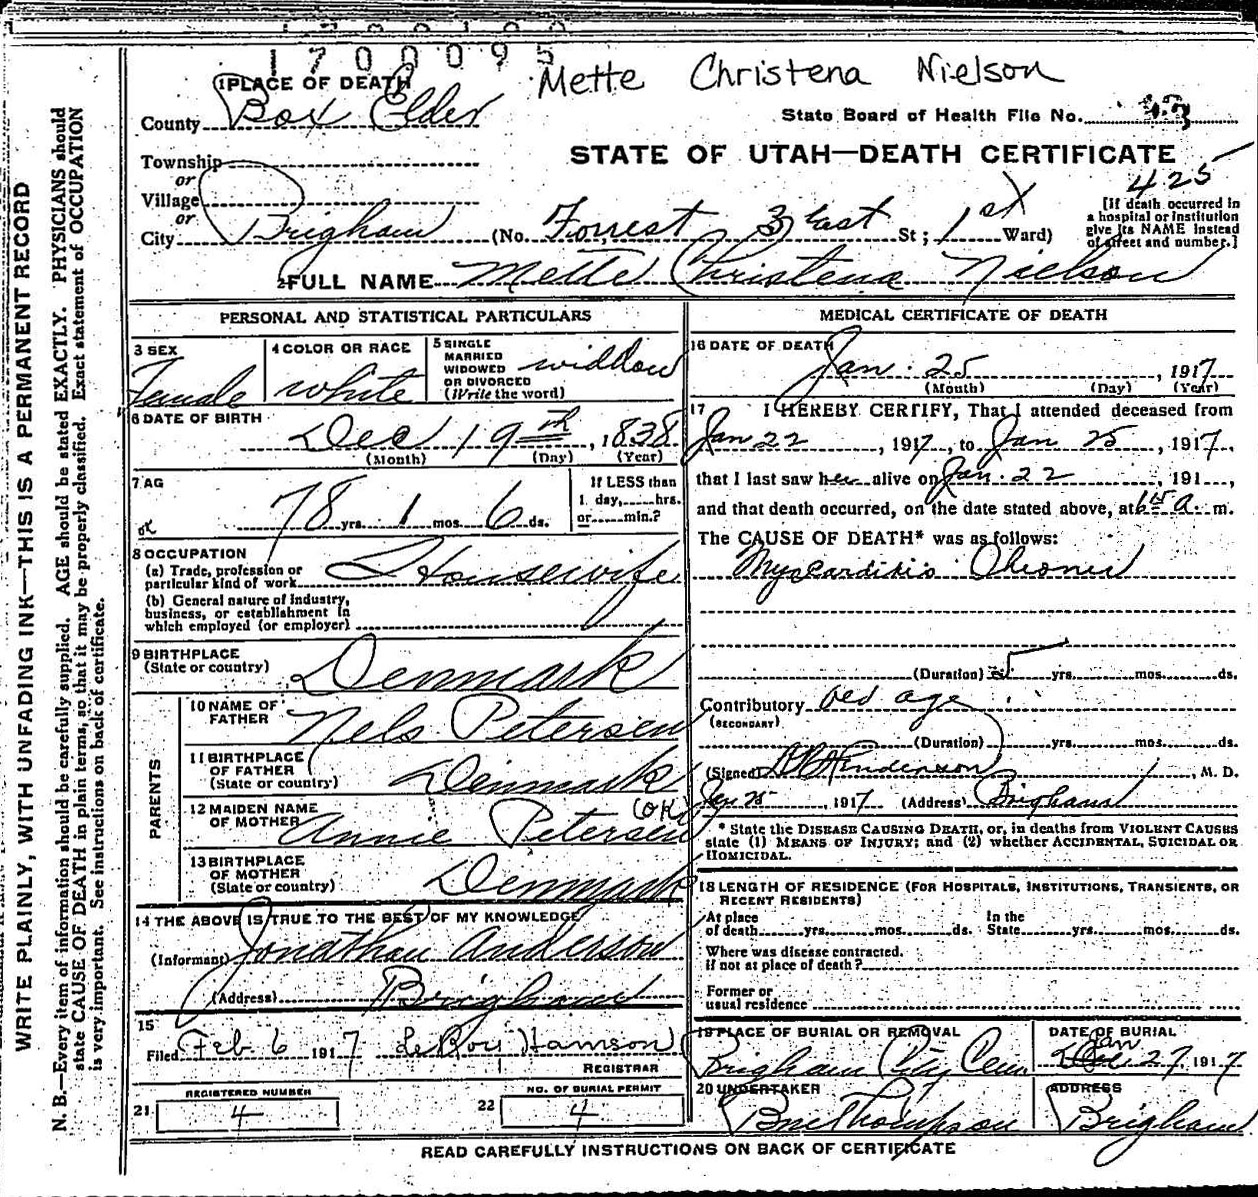 1700095
Mette Christena Nielson
1 PLACE OF DEATH
County Box Elder
State Board of Health File No.
STATE OF UTAH—DEATH CERTIFICATE
425
Township
or
Village
or
City Brigham (No. Forrest 3 East St; 1st Ward)
[If death occurred in a hospital or institution give its NAME instead of street and number.]
2 FULL NAME Mette Christena Nielson
PERSONAL AND STATISTICAL PARTICULARS
3 SEX
Female
4 COLOR OR RACE
white
5 SINGLE
MARRIED
WIDOWED
OR DIVORCED
(Write the word)
widdow
6 DATE OF BIRTH
Dec 19th, 1838
(Month) (Day) (Year)
7 AG
78 yrs. 1 mos. 6 ds.
If LESS than
1 day, hrs.
or min.?
8 OCCUPATION
(a) Trade, profession or
particular kind of work Housewife
(b) General nature of industry,
business, or establishment in
which employed (or employer)
9 BIRTHPLACE
(State or country) Denmark
PARENTS
10 NAME OF
FATHER Nels Petersen
11 BIRTHPLACE
OF FATHER
(State or country) Denmark
12 MAIDEN NAME
OF MOTHER Annie Petersen (OK)
13 BIRTHPLACE
OF MOTHER
(State or country) Denmark
14 THE ABOVE IS TRUE TO THE BEST OF MY KNOWLEDGE
(Informant) Jonathan Anderson
(Address) Brigham
15
Filed Feb 6 1917
REGISTRAR
REGISTERED NUMBER
21 4
NO. OF BURIAL PERMIT
22 4
MEDICAL CERTIFICATE OF DEATH
16 DATE OF DEATH
Jan. 25, 1917
(Month) (Day) (Year)
17 I HEREBY CERTIFY, That I attended deceased from
Jan 22, 1917, to Jan 25, 1917,
that I last saw her alive on Jan. 22, 191 ,
and that death occurred, on the date stated above, at a. m.
The CAUSE OF DEATH* was as follows:
Myocarditis
(Duration) yrs. mos. ds.
Contributory old age
(SECONDARY)
(Duration) yrs. mos. ds.
(Signed) Henderson, M. D.
Jan 25, 1917 (Address) Brigham
* State the DISEASE CAUSING DEATH, or, in deaths from VIOLENT CAUSES
state (1) MEANS OF INJURY; and (2) whether ACCIDENTAL, SUICIDAL OR
HOMICIDAL.
18 LENGTH OF RESIDENCE (FOR HOSPITALS, INSTITUTIONS, TRANSIENTS, OR
RECENT RESIDENTS)
At place
of death yrs. mos. ds.
In the
State yrs. mos. ds.
Where was disease contracted.
if not at place of death?
Former or
usual residence
19 PLACE OF BURIAL OR REMOVAL
Brigham City Cem
DATE OF BURIAL
Jan 27, 1917
20 UNDERTAKER
Thompson
ADDRESS
Brigham
READ CAREFULLY INSTRUCTIONS ON BACK OF CERTIFICATE
WRITE PLAINLY, WITH UNFADING INK—THIS IS A PERMANENT RECORD
N. B.—Every item of information should be carefully supplied. AGE should be stated EXACTLY. PHYSICIANS should
state CAUSE OF DEATH in plain terms, so that it may be properly classified. Exact statement of OCCUPATION
is very important. See instructions on back of certificate.